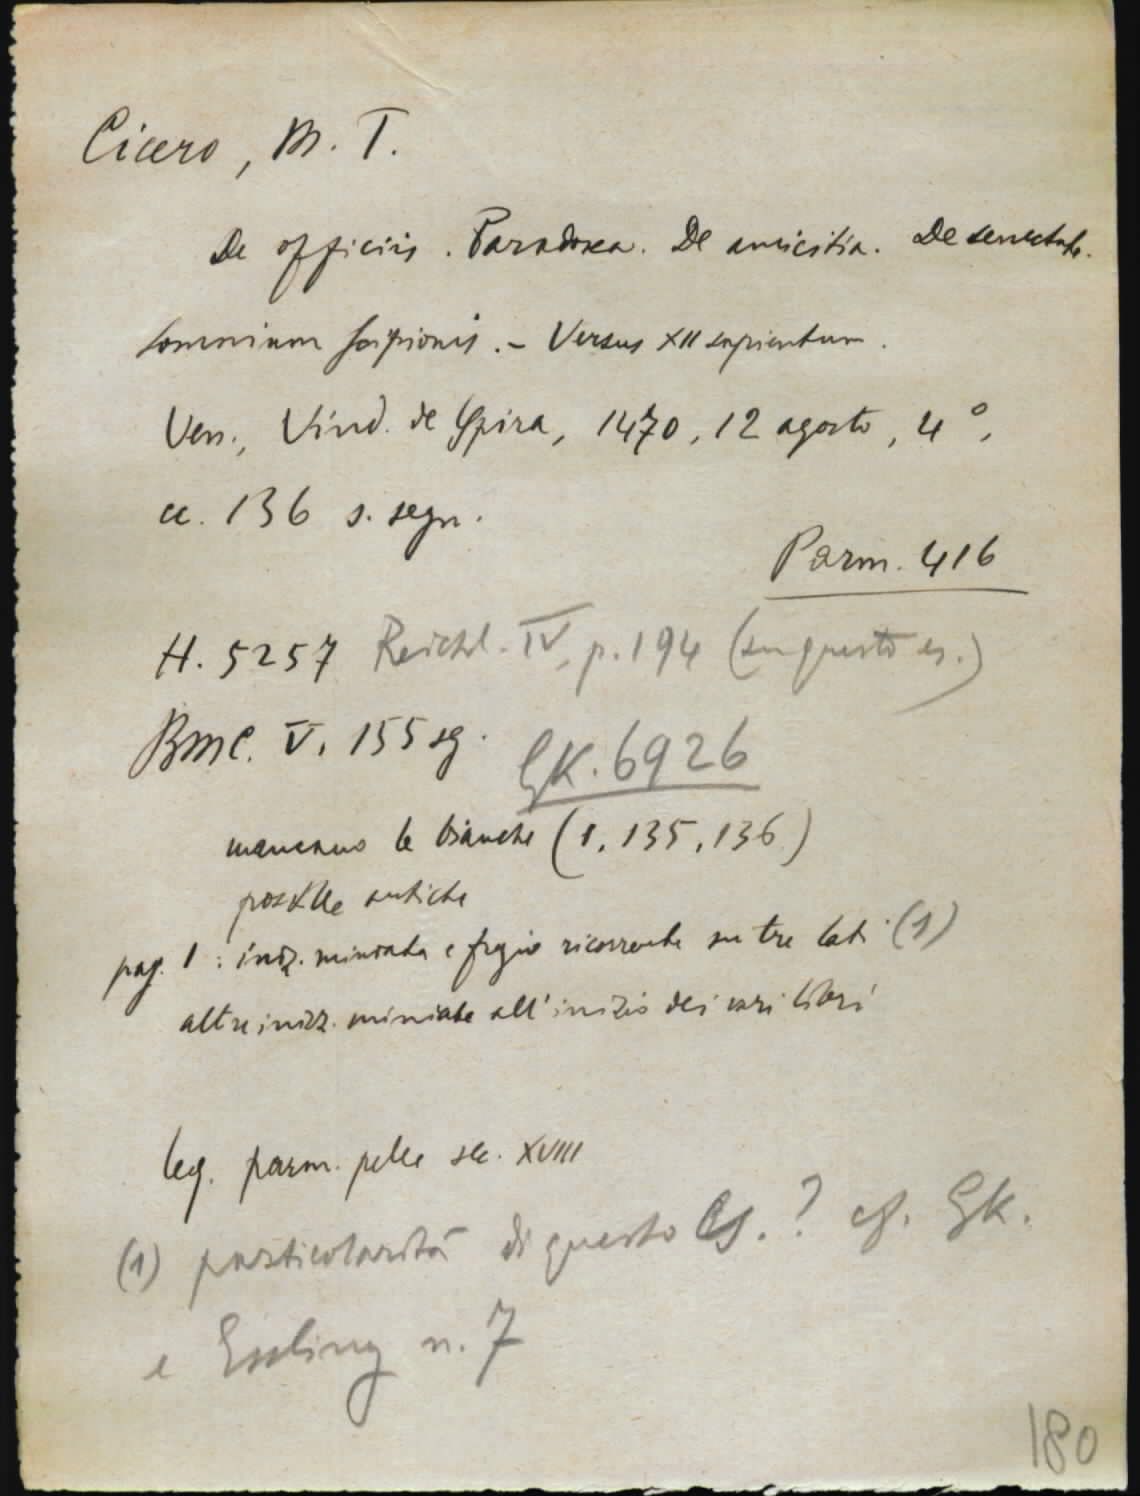 Cicero, M. T.
De officiis. Paradoxa. De amicitia. De senectute.
Somnium Scipionis. - Versus XII sapientum.
Ven., Vind. de Spira, 1470, 12 agosto, 4°,
cc. 136 s. segn.
Parm. 416
H. 5257 Reichl. IV, p. 194 (su questo es.)
BMC. V, 155 sg.
GK. 6926
mancano le bianche (1, 135, 136)
postille antiche
pag. 1: iniz. miniata e fregio ricorrente su tre lati (1)
altre inizz. miniate all'inizio dei vari libri
leg. parm. pelle sec. XVIII
(1) particolarità di questo es.? cf. GK.
e Essling n. 7
180